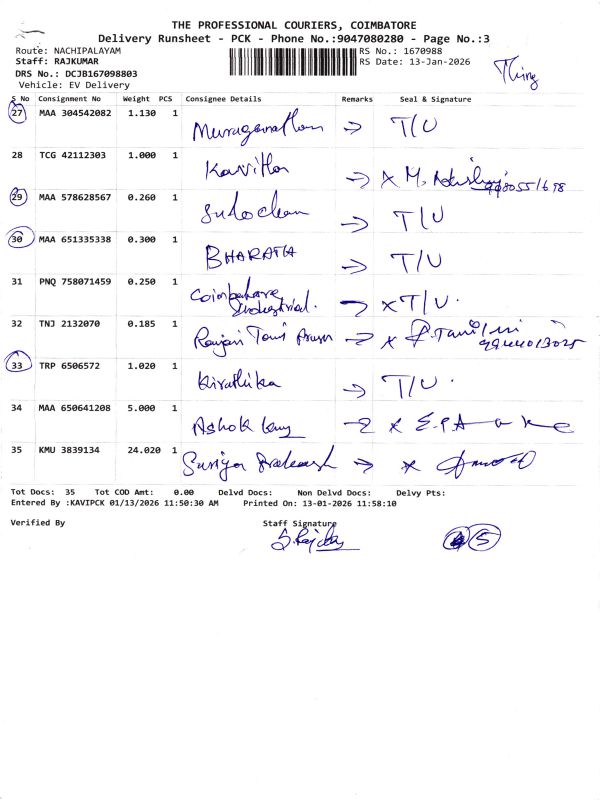 THE PROFESSIONAL COURIERS, COIMBATORE
Delivery Runsheet - PCK - Phone No.:9047080280 - Page No.:3
Route: NACHIPALAYAM RS No.: 1670988
Staff: RAJKUMAR RS Date: 13-Jan-2026
DRS No.: DCJB167098803
Vehicle: EV Delivery
S No Consignment No Weight PCS Consignee Details Remarks Seal & Signature
27 MAA 304542082 1.130 1 Muruganathan → T/U
28 TCG 42112303 1.000 1 Kavitha → x M.
29 MAA 578628567 0.260 1 Sulochan → T/U
30 MAA 651335338 0.300 1 BHARATH → T/U
31 PNQ 758071459 0.250 1 Coimbatore Industrial. → x T/U.
32 TNJ 2132070 0.185 1 Ranjan Tami → x
33 TRP 6506572 1.020 1 Kirathika → T/U.
34 MAA 650641208 5.000 1 Ashok → x
35 KMU 3839134 24.020 1 Suriya Prakash → x
Tot Docs: 35 Tot COD Amt: 0.00 Delvd Docs: Non Delvd Docs: Delvy Pts:
Entered By :KAVIPCK 01/13/2026 11:50:30 AM Printed On: 13-01-2026 11:58:10
Verified By Staff Signature
5